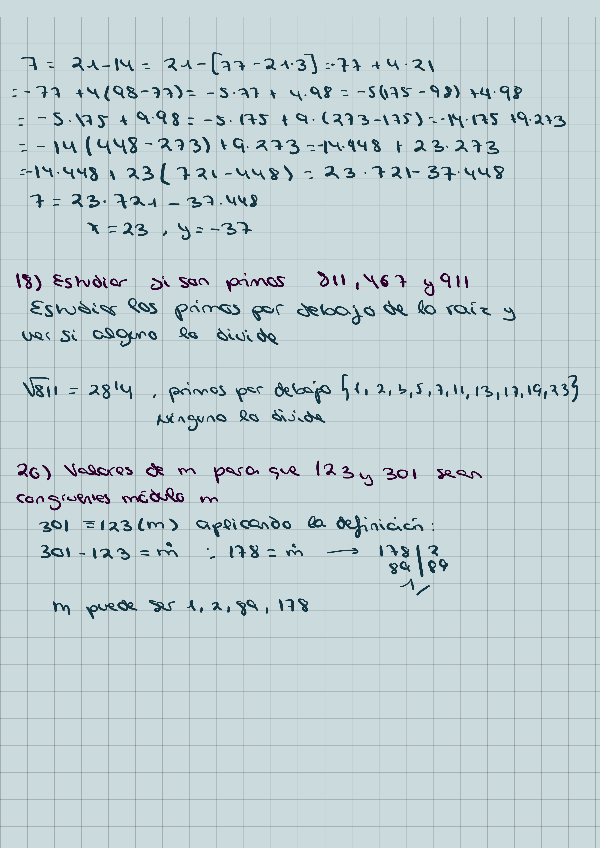 7 = 21-14 = 21-[77-21·3] = -77 + 4·21
= -77 + 4(98-77) = -5·77 + 4·98 = -5(175-98) + 4·98
= -5·175 + 9·98 = -5·175 + 9·(273-175) = -14·175 + 9·273
= -14(448-273) + 9·273 = -14·448 + 23·273
= -14·448 + 23(721-448) = 23·721 - 37·448
7 = 23·721 - 37·448
x = 23, y = -37
18) Estudiar si son primos 811, 467 y 911
Estudiar los primos por debajo de la raíz y
ver si alguno lo divide
√811 = 28'4, primos por debajo {1, 2, 3, 5, 7, 11, 13, 17, 19, 23}
Ninguno lo divide
20) Valores de m para que 123 y 301 sean
congruentes módulo m
301 ≡ 123 (m) aplicando la definición:
301 - 123 = ṁ : 178 = ṁ → 178 | 2
89 | 89
1
m puede ser 1, 2, 89, 178